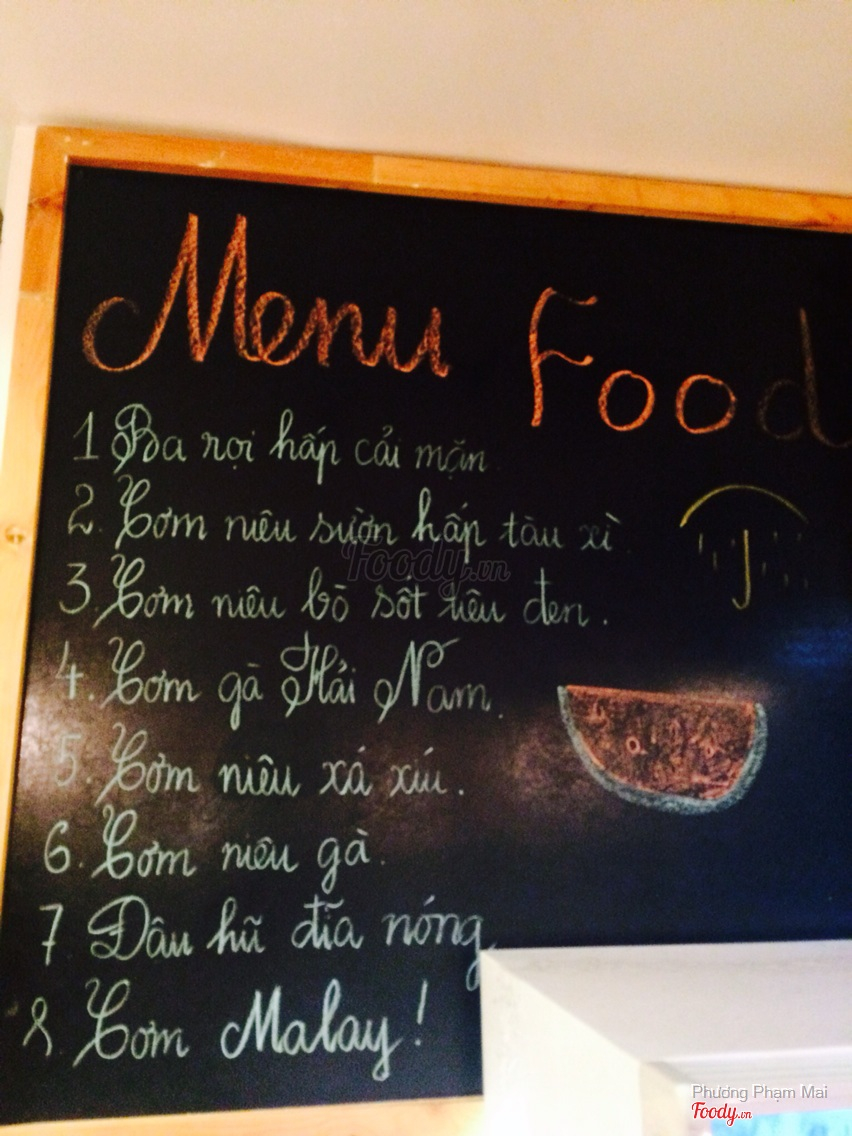 Menu Food
1 Ba rọi hấp cải mặn
2. Cơm niêu sườn hấp tàu xì.
3. Cơm niêu bò sốt tiêu đen.
4. Cơm gà Hải Nam.
5. Cơm niêu xá xíu.
6. Cơm niêu gà.
7 Dâu hũ đĩa nóng
8. Cơm Malay!
Foody.vn
Phương Phạm Mai
Foody.vn